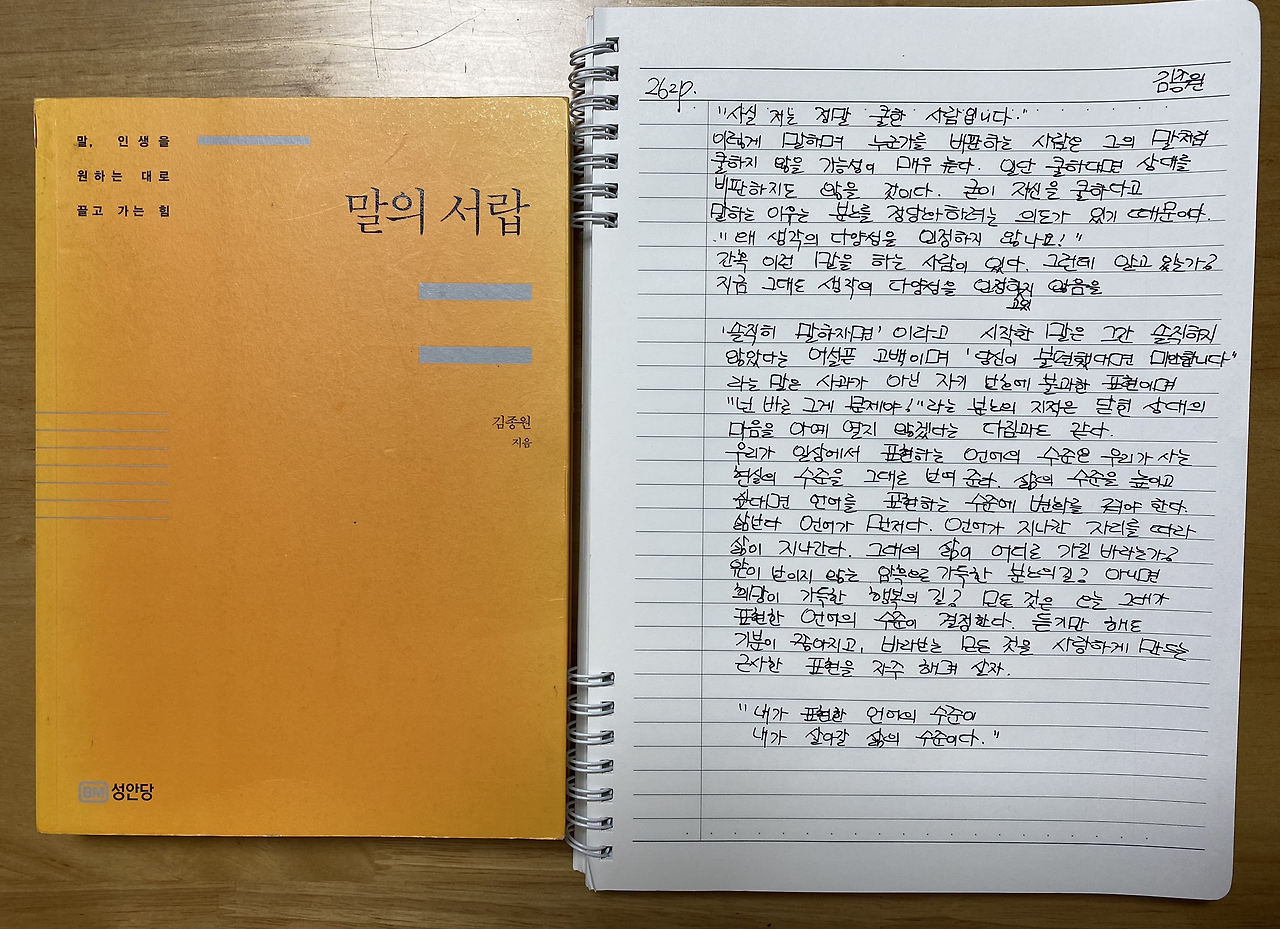 말, 인생을
원하는 대로
끌고 가는 힘
말의 서랍
김종원
지음
BM 성안당
262p.
김종원
"사실 저는 정말 쿨한 사람입니다."
이렇게 말하며 누군가를 비판하는 사람은 그의 말처럼
쿨하지 않을 가능성이 매우 높다. 일단 쿨하다면 상대를
비판하지도 않을 것이다. 굳이 자신을 쿨하다고
말하는 이유는 분노를 정당화하려는 의도가 있기 때문이다.
"왜 생각의 다양성을 인정하지 않나요!"
간혹 이런 말을 하는 사람이 있다. 그런데 알고 있는가?
지금 그대도 생각의 다양성을 인정하지 않음을
고있
'솔직히 말하자면' 이라고 시작한 말은 그간 솔직하지
않았다는 어설픈 고백이며 '당신이 불편했다면 미안합니다'
라는 말은 사과가 아닌 자기 변호에 불과한 표현이며
"넌 바로 그게 문제야!"라는 분노의 지적은 닫힌 상대의
마음을 아예 열지 않겠다는 다짐과도 같다.
우리가 일상에서 표현하는 언어의 수준은 우리가 사는
현실의 수준을 그대로 보여 준다. 삶의 수준을 높이고
싶다면 언어를 표현하는 수준에 변화를 줘야 한다.
삶보다 언어가 먼저다. 언어가 지나간 자리를 따라
삶이 지나간다. 그대의 삶이 어디로 가길 바라는가?
앞이 보이지 않는 암흑으로 가득한 분노의 길? 아니면
희망이 가득한 행복의 길? 모든 것은 오늘 그대가
표현한 언어의 수준이 결정한다. 듣기만 해도
기분이 좋아지고, 바라보는 모든 것을 사랑하게 만드는
근사한 표현을 자주 하며 살자.
"내가 표현한 언어의 수준이
내가 살아갈 삶의 수준이다."